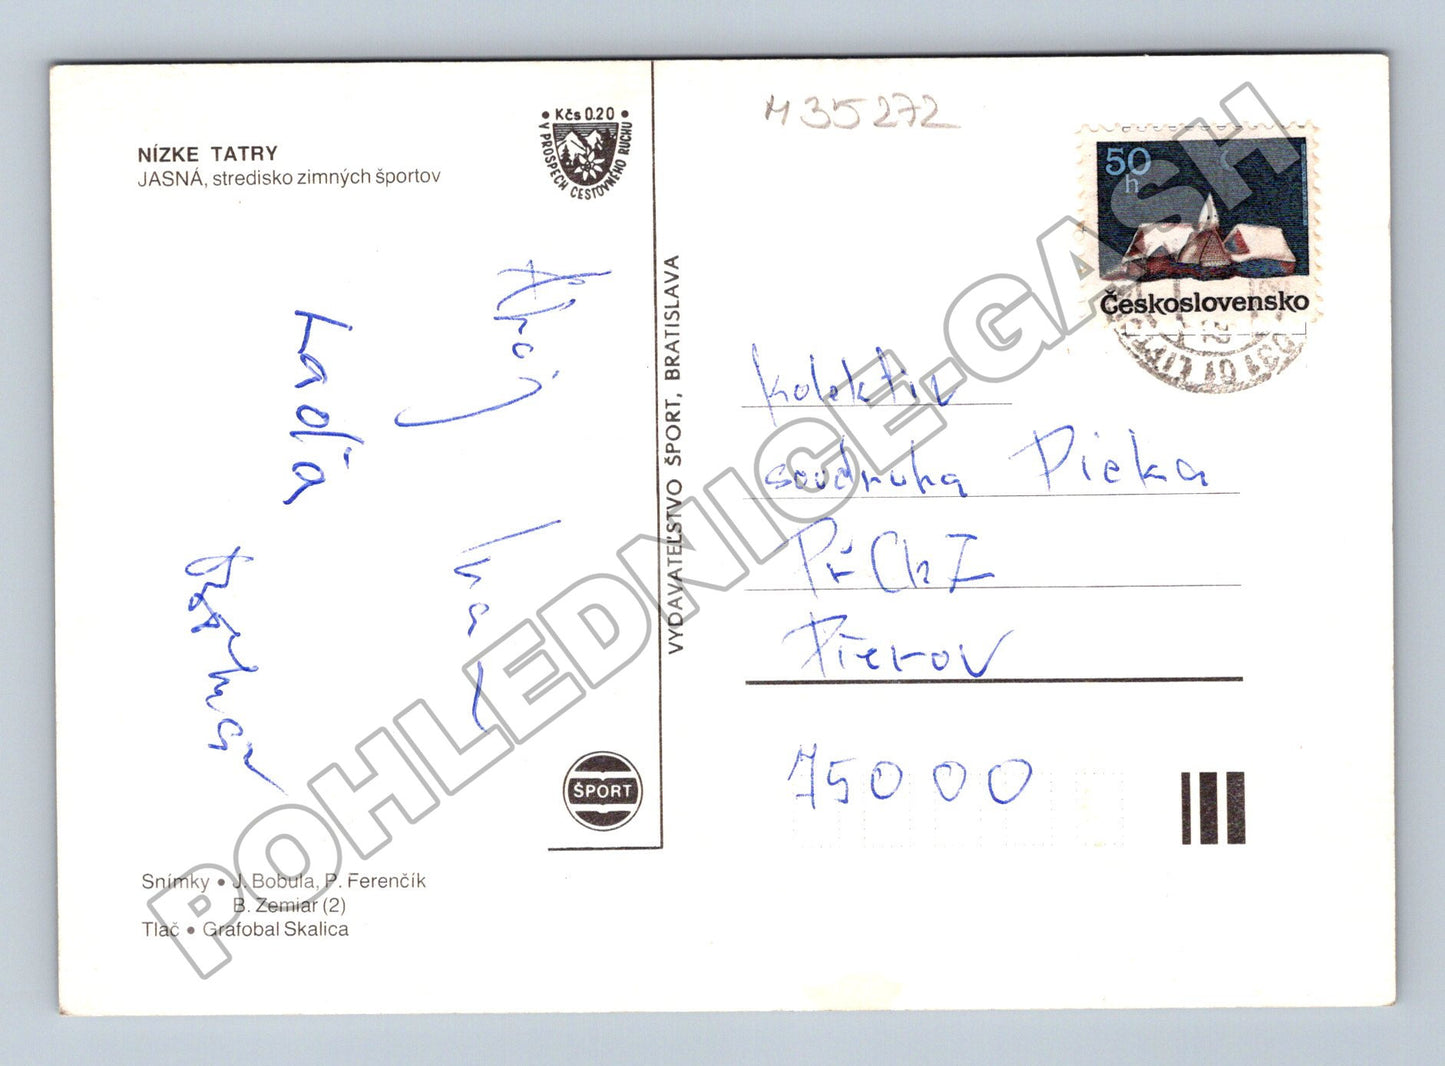 NÍZKE TATRY
JASNÁ, stredisko zimných športov
• Kčs 0.20 •
V PROSPECH CESTOVNÉHO RUCHU
Laďa
VYDAVATEĽSTVO ŠPORT, BRATISLAVA
ŠPORT
Snímky • J. Bobula, P. Ferenčík
B. Zemiar (2)
Tlač • Grafobal Skalica
M 35272
50
h
Československo
kolektiv
soudruha Picka
PřChZ
Přerov
75000
POHLEDNICE.GASH